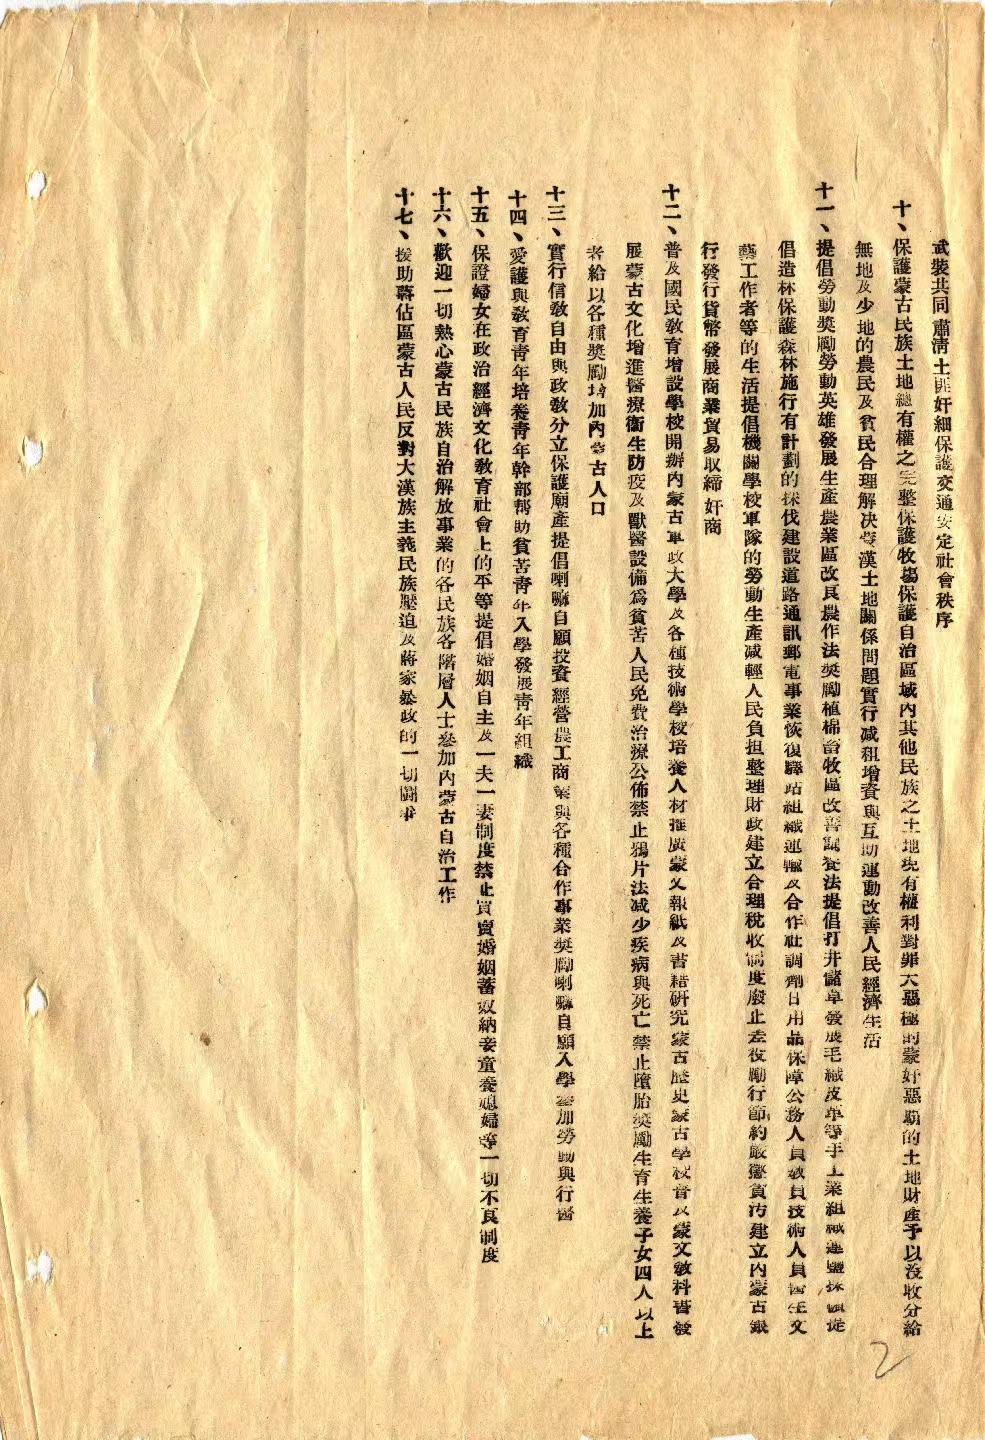 武裝共同肅清土匪奸細保護交通安定社會秩序
十、保護蒙古民族土地總有權之完整保護牧場保護自治區域內其他民族之土地現有權利對罪大惡極的蒙奸惡霸的土地財產予以沒收分給
無地及少地的農民及貧民合理解決蒙漢土地關係問題實行減租增資與互助運動改善人民經濟生活
十一、提倡勞動獎勵勞動英雄發展生產農業區改良農作法獎勵植棉畜牧區改善飼養法提倡打井儲草發展毛織皮革等手工業組織運鹽採鹼提
倡造林保護森林施行有計劃的採伐建設道路通訊郵電事業恢復驛站組織運輸及合作社調劑日用品保障公務人員敎員技術人員醫生文
藝工作者等的生活提倡機關學校軍隊的勞動生產減輕人民負担整理財政建立合理稅收制度廢止差役勵行節約嚴懲貪汚建立內蒙古銀
行發行貨幣發展商業貿易取締奸商
十二、普及國民敎育增設學校開辦內蒙古軍政大學及各種技術學校培養人材推廣蒙文報紙及書籍硏究蒙古歷史蒙古學校普及蒙文敎科書發
展蒙古文化增進醫療衞生防疫及獸醫設備爲貧苦人民免費治療公佈禁止鴉片法減少疾病與死亡禁止墮胎獎勵生育生養子女四人以上
者給以各種獎勵增加內蒙古人口
十三、實行信敎自由與政敎分立保護廟產提倡喇嘛自願投資經營農工商業與各種合作事業獎勵喇嘛自願入學參加勞動與行醫
十四、愛護與敎育靑年培養靑年幹部帮助貧苦靑年入學發展靑年組織
十五、保證婦女在政治經濟文化敎育社會上的平等提倡婚姻自主及一夫一妻制度禁止買賣婚姻蓄奴納妾童養媳婦等一切不良制度
十六、歡迎一切熱心蒙古民族自治解放事業的各民族各階層人士參加內蒙古自治工作
十七、援助蔣佔區蒙古人民反對大漢族主義民族壓迫及蔣家暴政的一切鬪爭
2